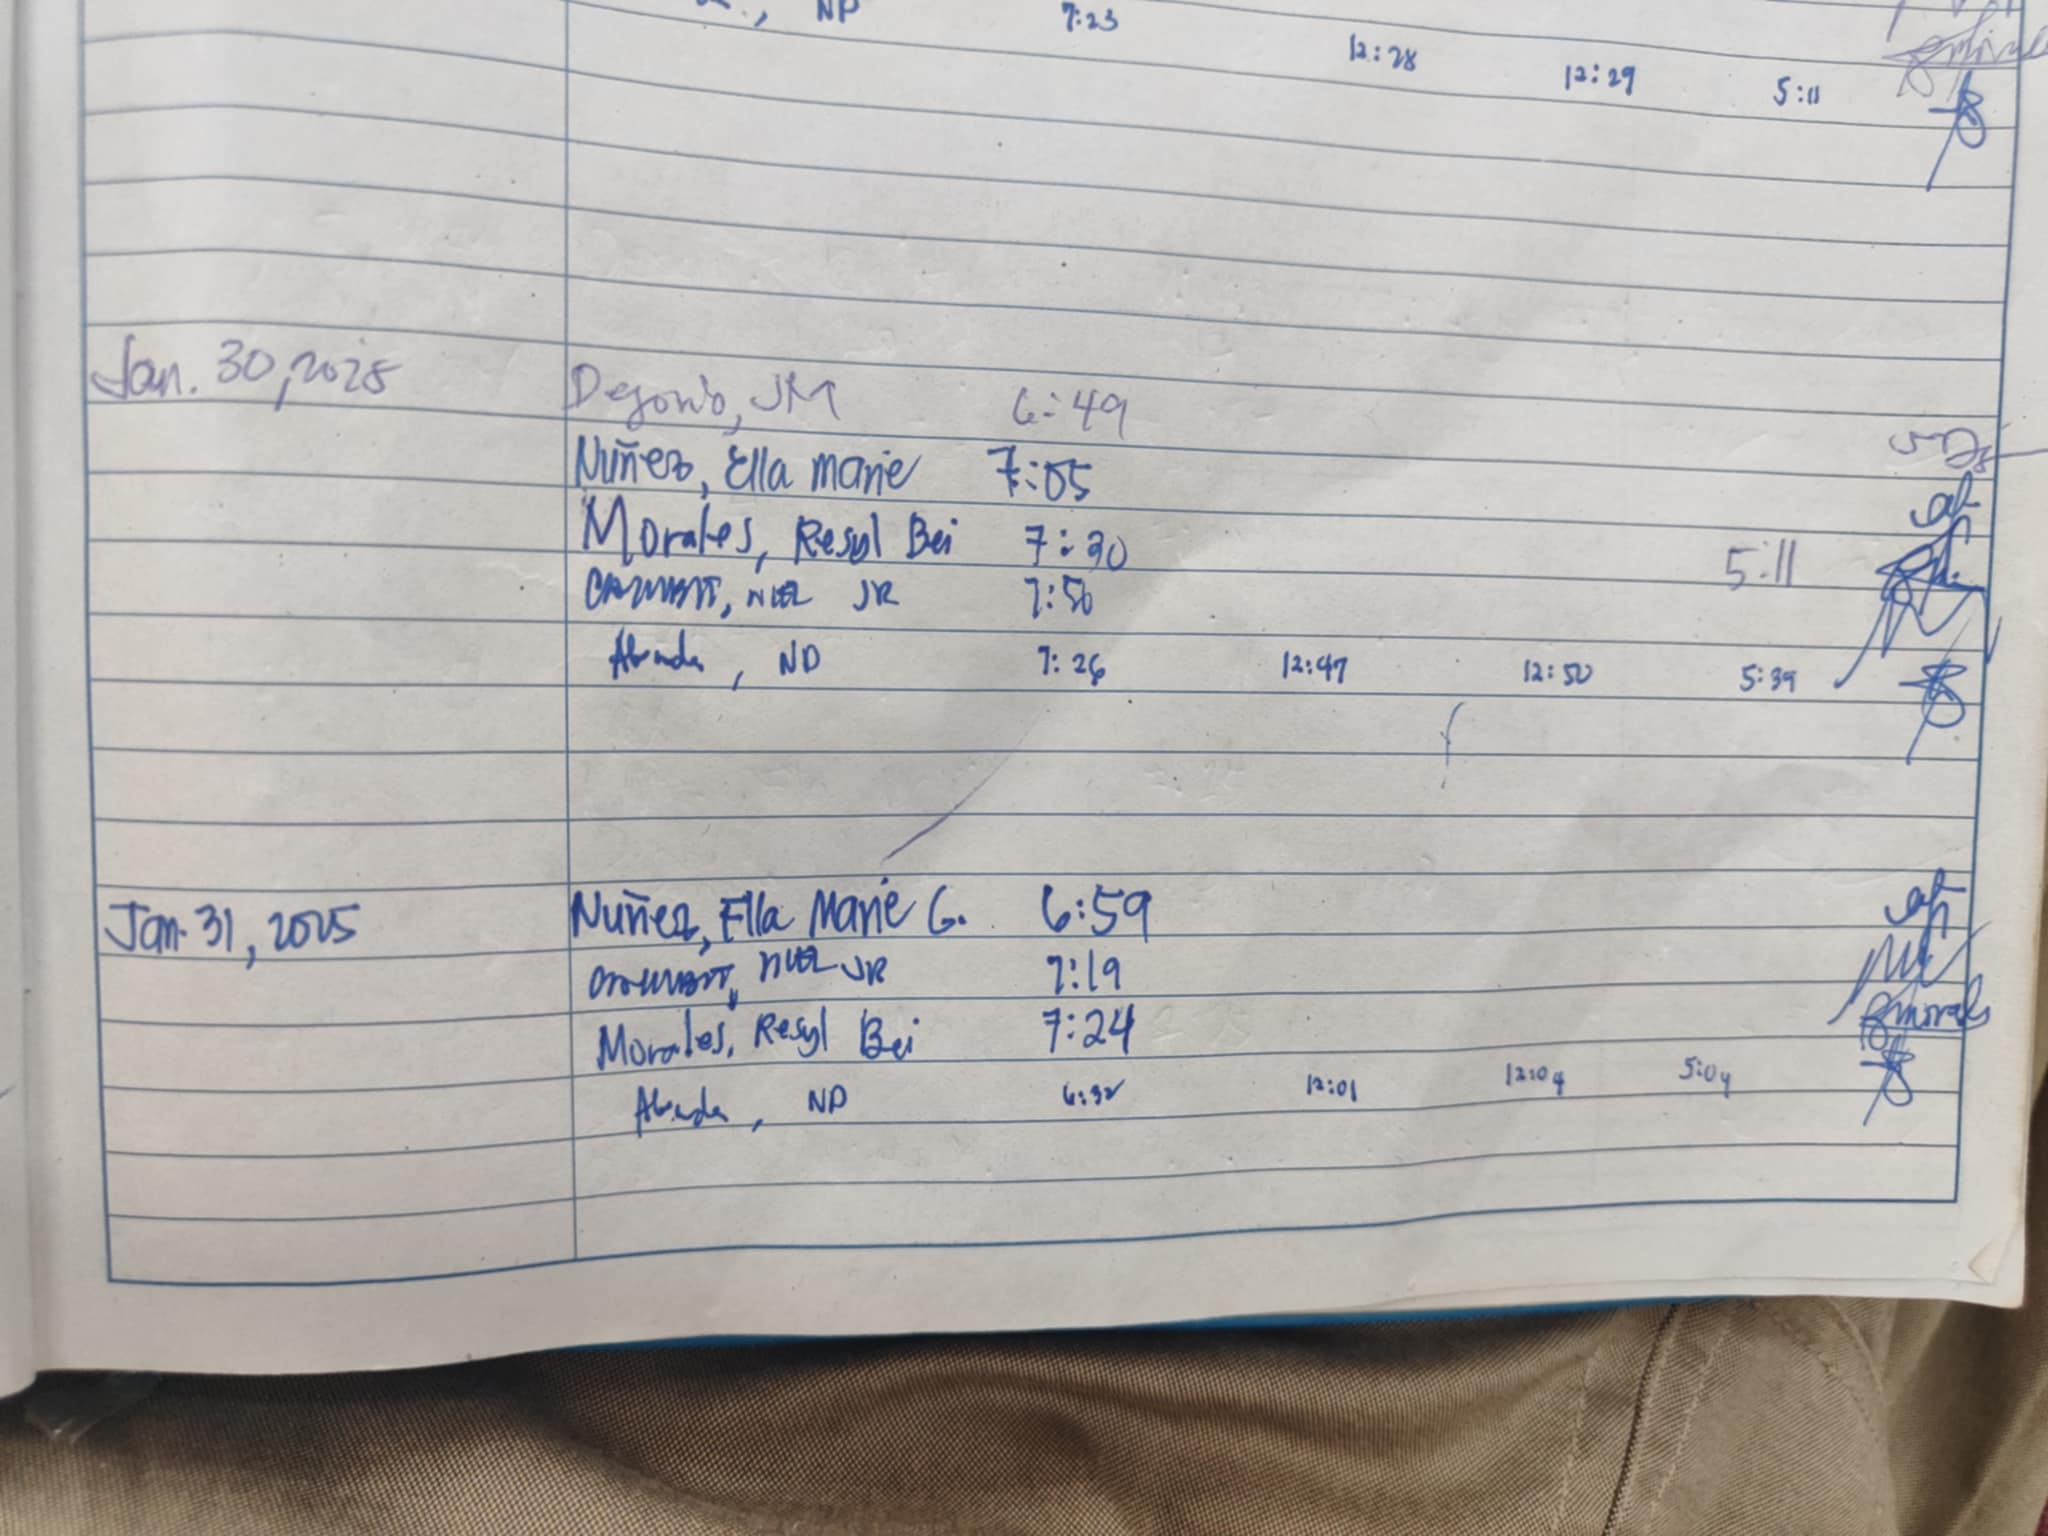 , NP 7:23 12:28 12:29 5:11
Jan. 30, 2025 JM 6:49
Nuñez, Ella Marie 7:05
Morales, Resyl Bei 7:30 5:11
JR 7:50
Abada, NP 7:26 12:47 12:50 5:39
Jan. 31, 2025 Nuñez, Ella Marie G. 6:59
JR 7:19
Morales, Resyl Bei 7:24
Abada, NP 6:32 12:01 12:04 5:04